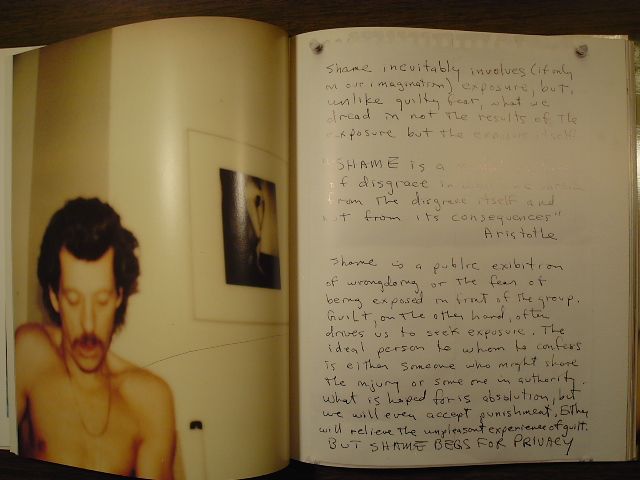 Shame inevitably involves (if only
in our imagination) exposure, but,
unlike guilty fear, what we
dread in not the results of the
exposure but the exposure itself.
"SHAME is a
of disgrace in which we
from the disgrace itself and
not from its consequences"
Aristotle
Shame is a public exibition
of wrongdoing or the fear of
being exposed in front of the group.
Guilt, on the other hand, often
drives us to seek exposure. The
ideal person to whom to confess
is either someone who might share
the injury or some one in authority.
What is hoped for is absolution, but
we will even accept punishment, if they
will relieve the unpleasant experience of guilt.
BUT SHAME BEGS FOR PRIVACY